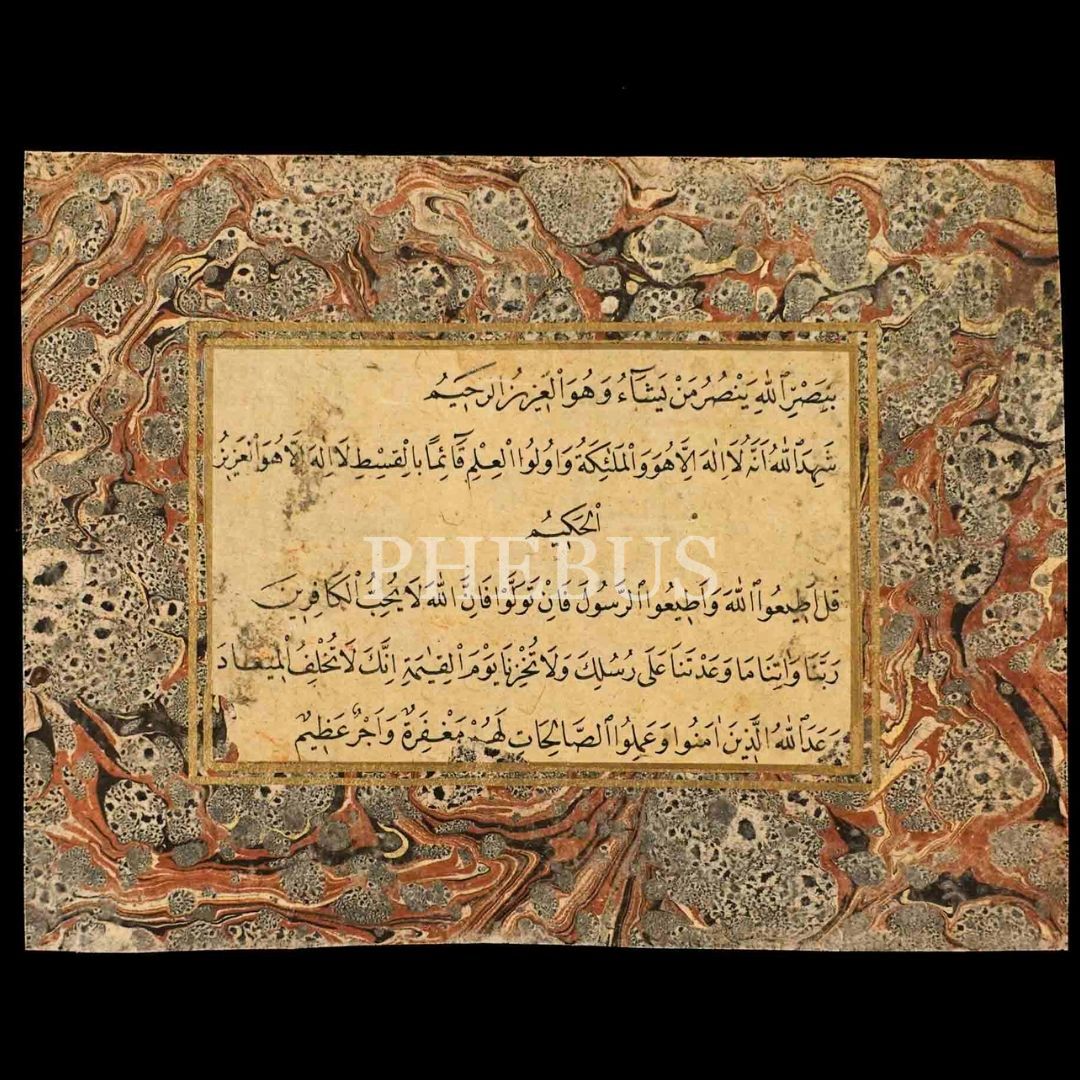 بِنَصْرِ ٱللّٰهِ يَنْصُرُ مَنْ يَشَآءُ وَهُوَ ٱلْعَزِيزُ ٱلرَّحِيمُ
شَهِدَ ٱللّٰهُ اَنَّهُ لَا اِلٰهَ اِلَّا هُوَ وَٱلْمَلٰئِكَةُ وَاُولُوا ٱلْعِلْمِ قَآئِمًا بِالْقِسْطِ لَا اِلٰهَ اِلَّا هُوَ ٱلْعَزِيزُ
ٱلْحَكِيمُ
PHEBUS
قُلْ اَطِيعُوا ٱللّٰهَ وَاَطِيعُوا ٱلرَّسُولَ فَاِنْ تَوَلَّوْا فَاِنَّ ٱللّٰهَ لَا يُحِبُّ ٱلْكَافِرِينَ
رَبَّنَا وَاٰتِنَا مَا وَعَدْتَنَا عَلٰى رُسُلِكَ وَلَا تُخْزِنَا يَوْمَ ٱلْقِيٰمَةِ اِنَّكَ لَا تُخْلِفُ ٱلْمِيعَادَ
وَعَدَ ٱللّٰهُ ٱلَّذِينَ اٰمَنُوا وَعَمِلُوا ٱلصَّالِحَاتِ لَهُمْ مَغْفِرَةٌ وَاَجْرٌ عَظِيمٌ